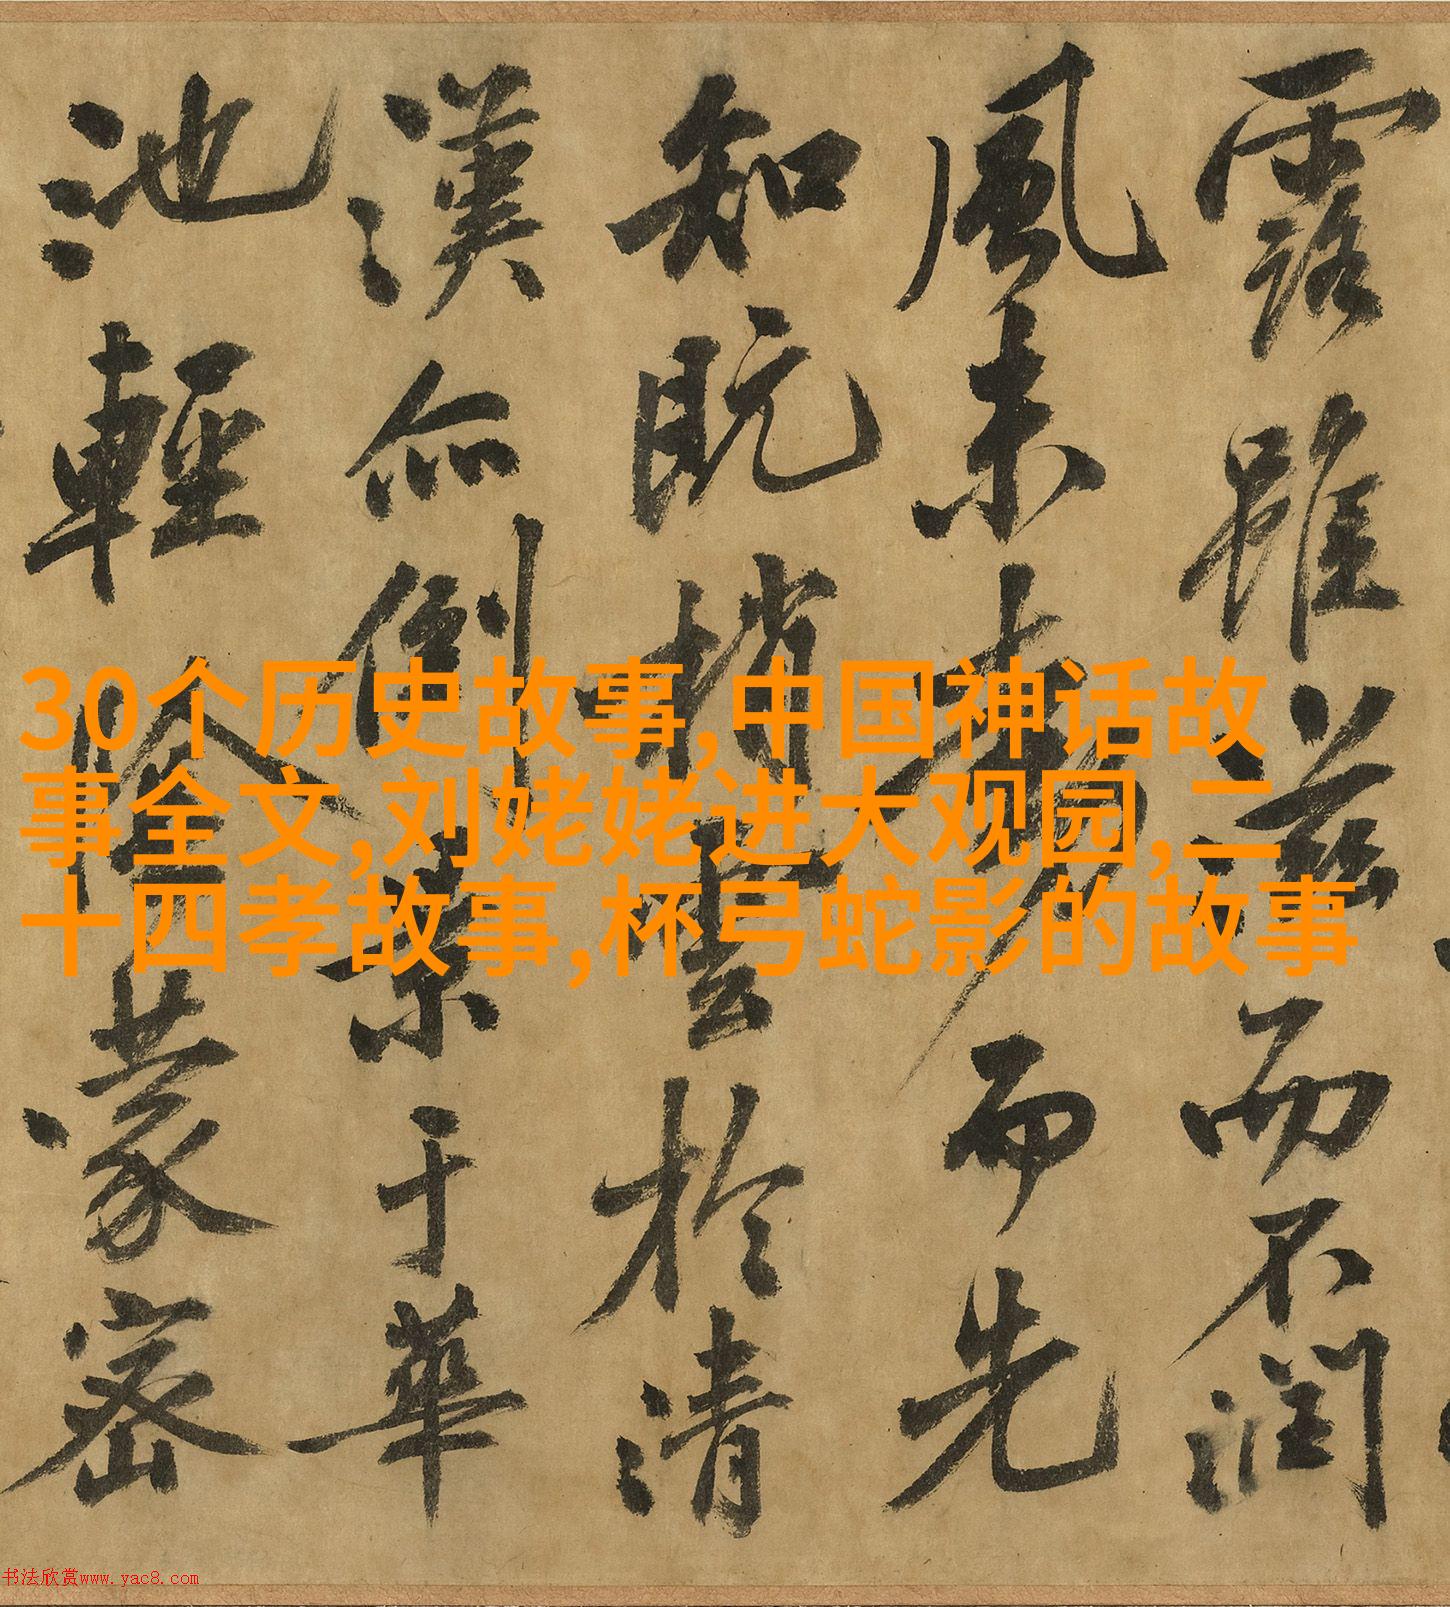 露雖茲而不潤
風未動而先
知既梢雲於清
漢亦倒景于華
池輕陰蒙密
30个历史故事,中国神话故
事全文,刘姥姥进大观园,二
十四孝故事,杯弓蛇影的故事
书法欣赏www.yac8.com